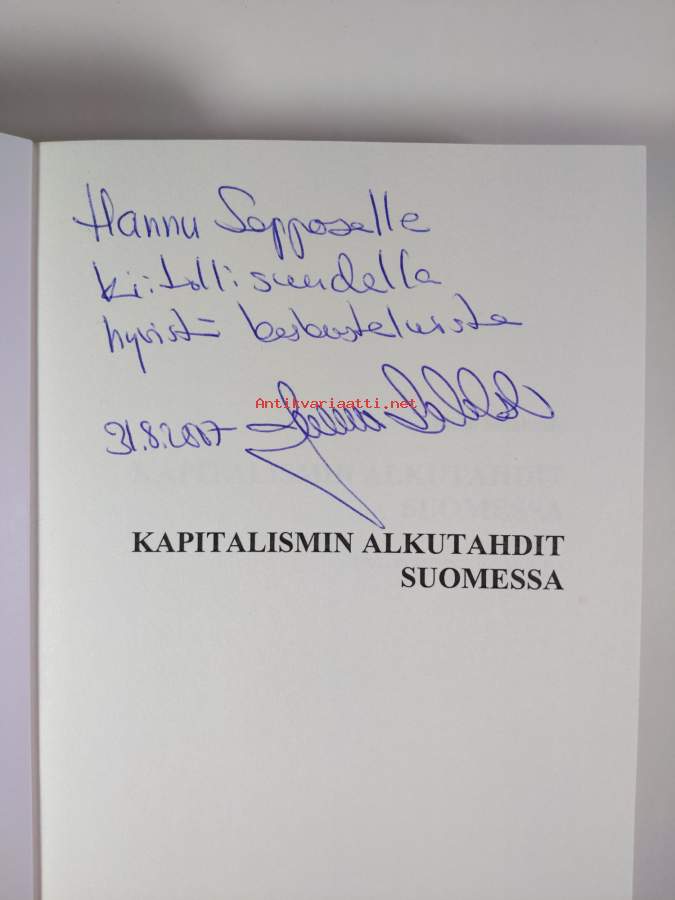 Hannu Sepposelle
kiitollisuudella
hyvistä keskusteluista
Antikvariaatti.net
31.8.2007
KAPITALISMIN ALKUTAHDIT
SUOMESSA